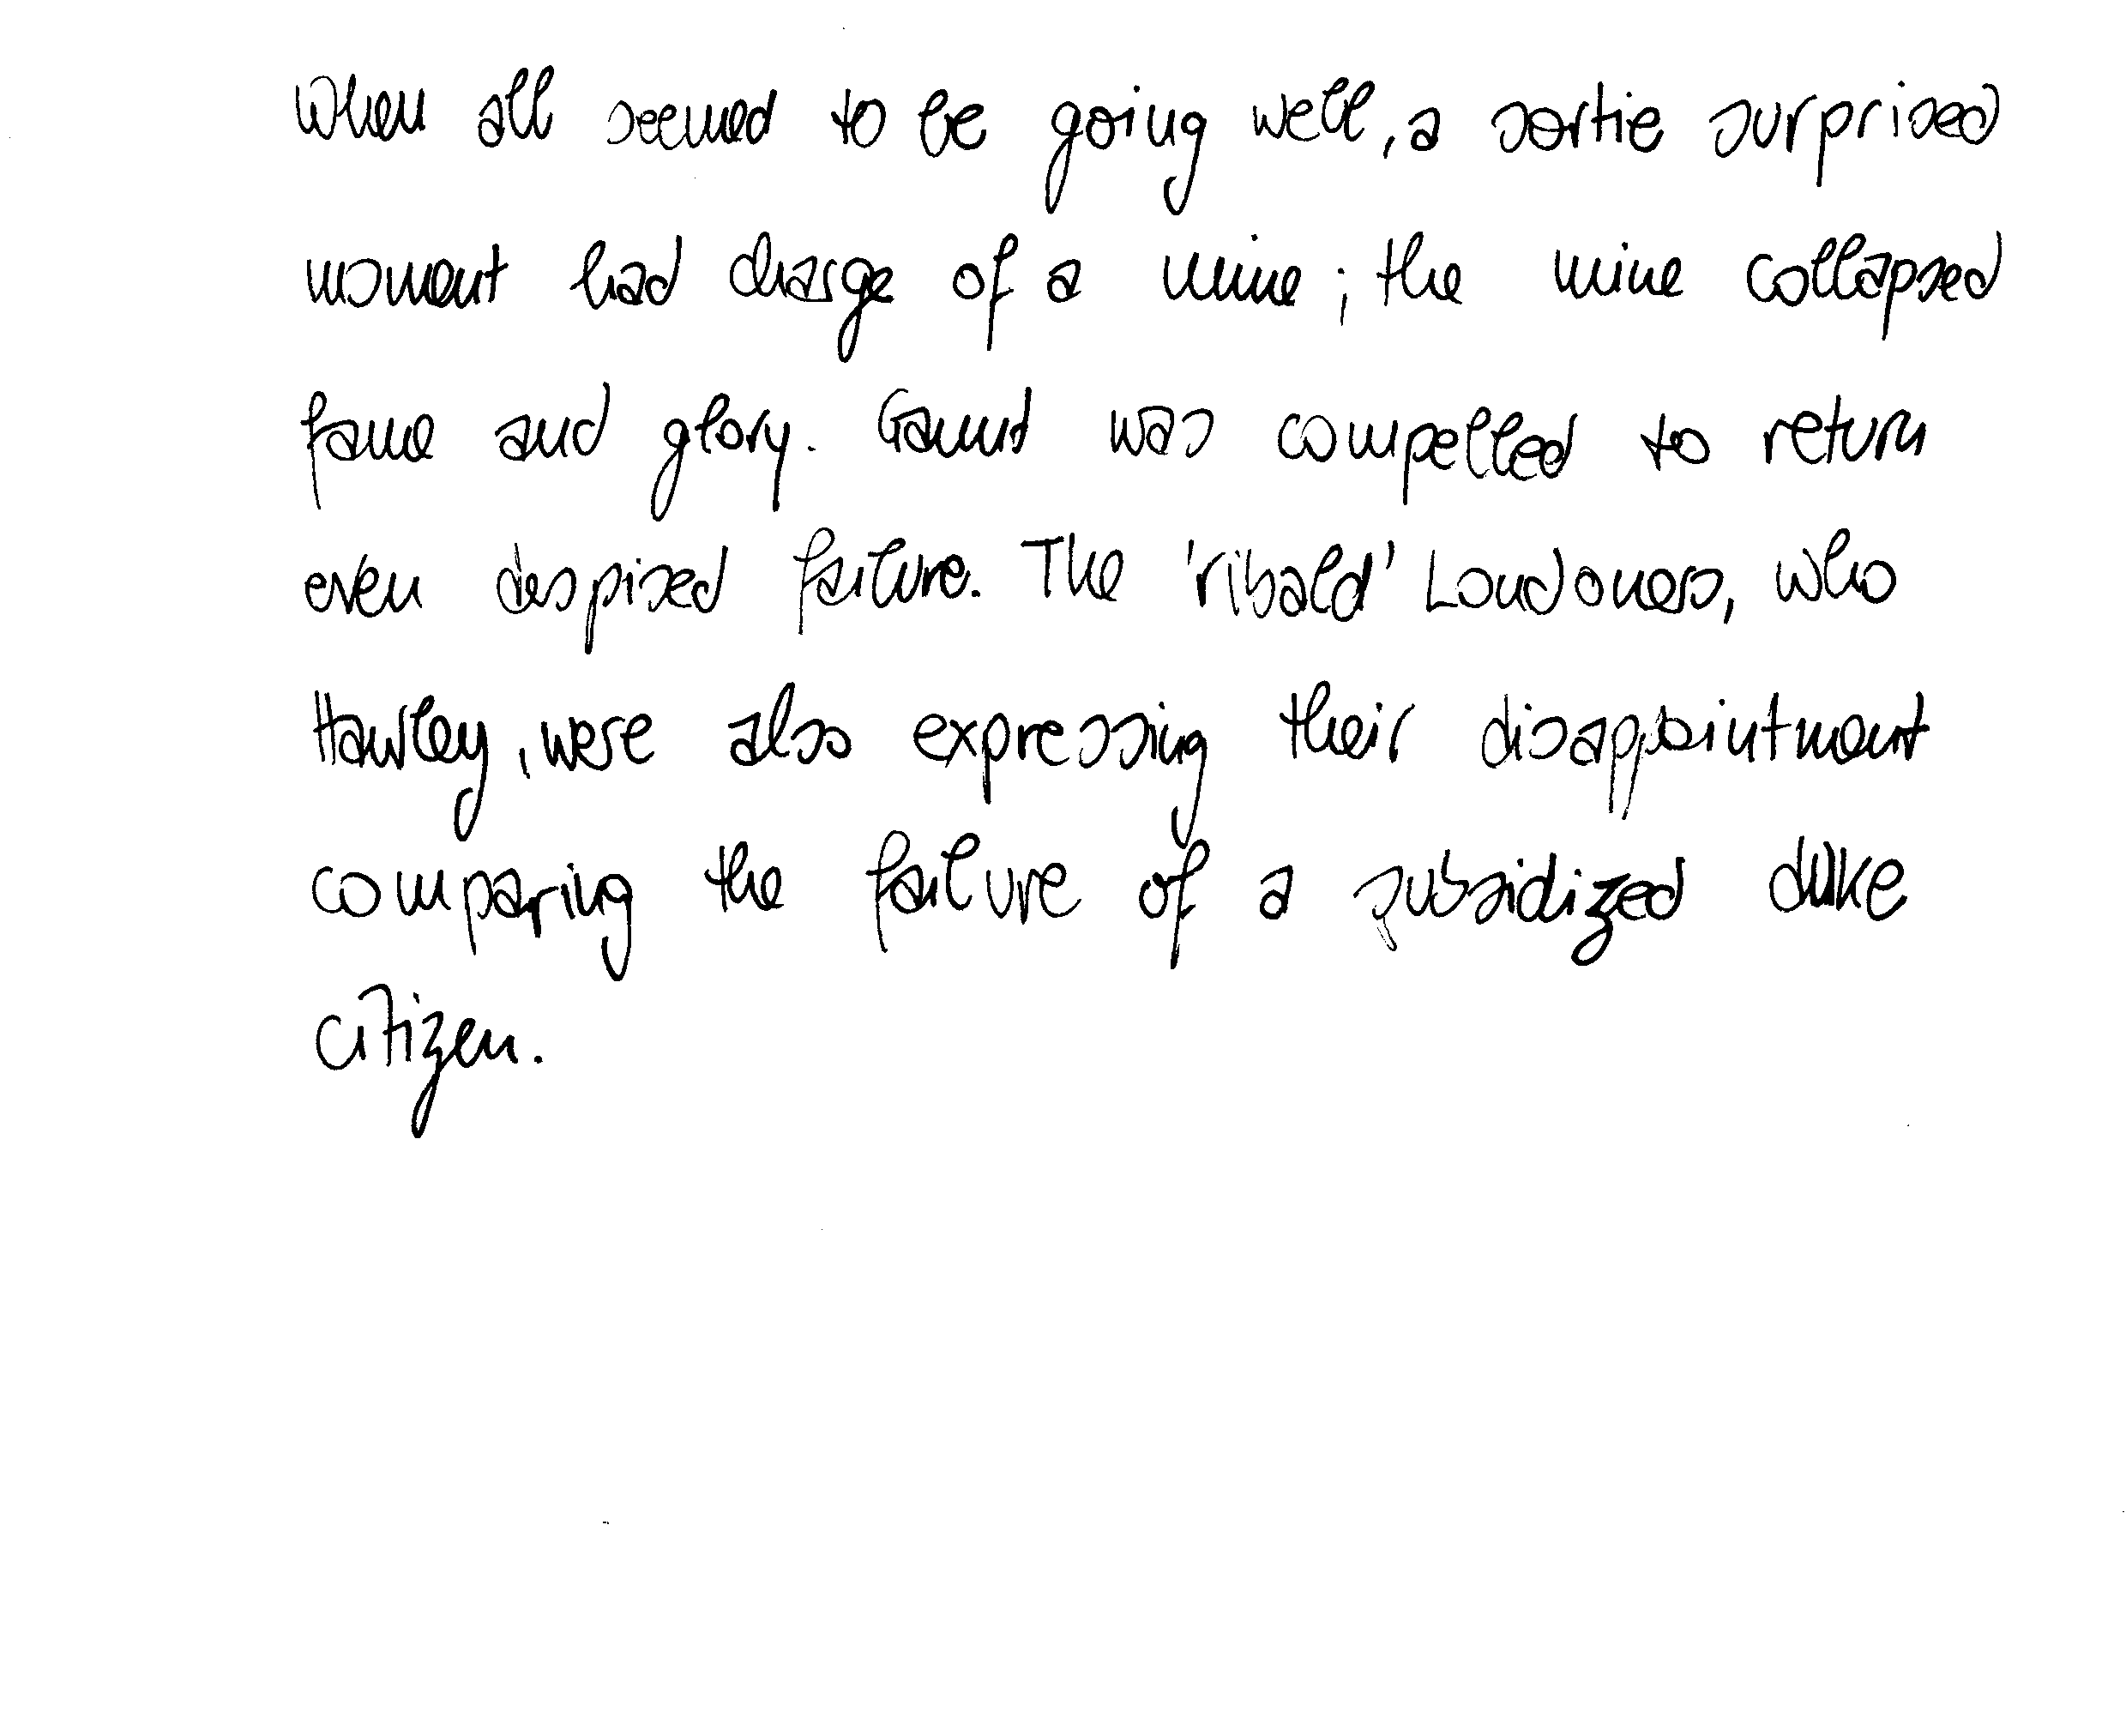 When all seemed to be going well, a sortie surprised
moment had charge of a mine ; the mine collapsed
fame and glory. Gaunt was compelled to return
even despised failure. The 'ribald' Londoners, who
Hawley, were also expressing their disappointment
comparing the failure of a subsidized duke
citizen.